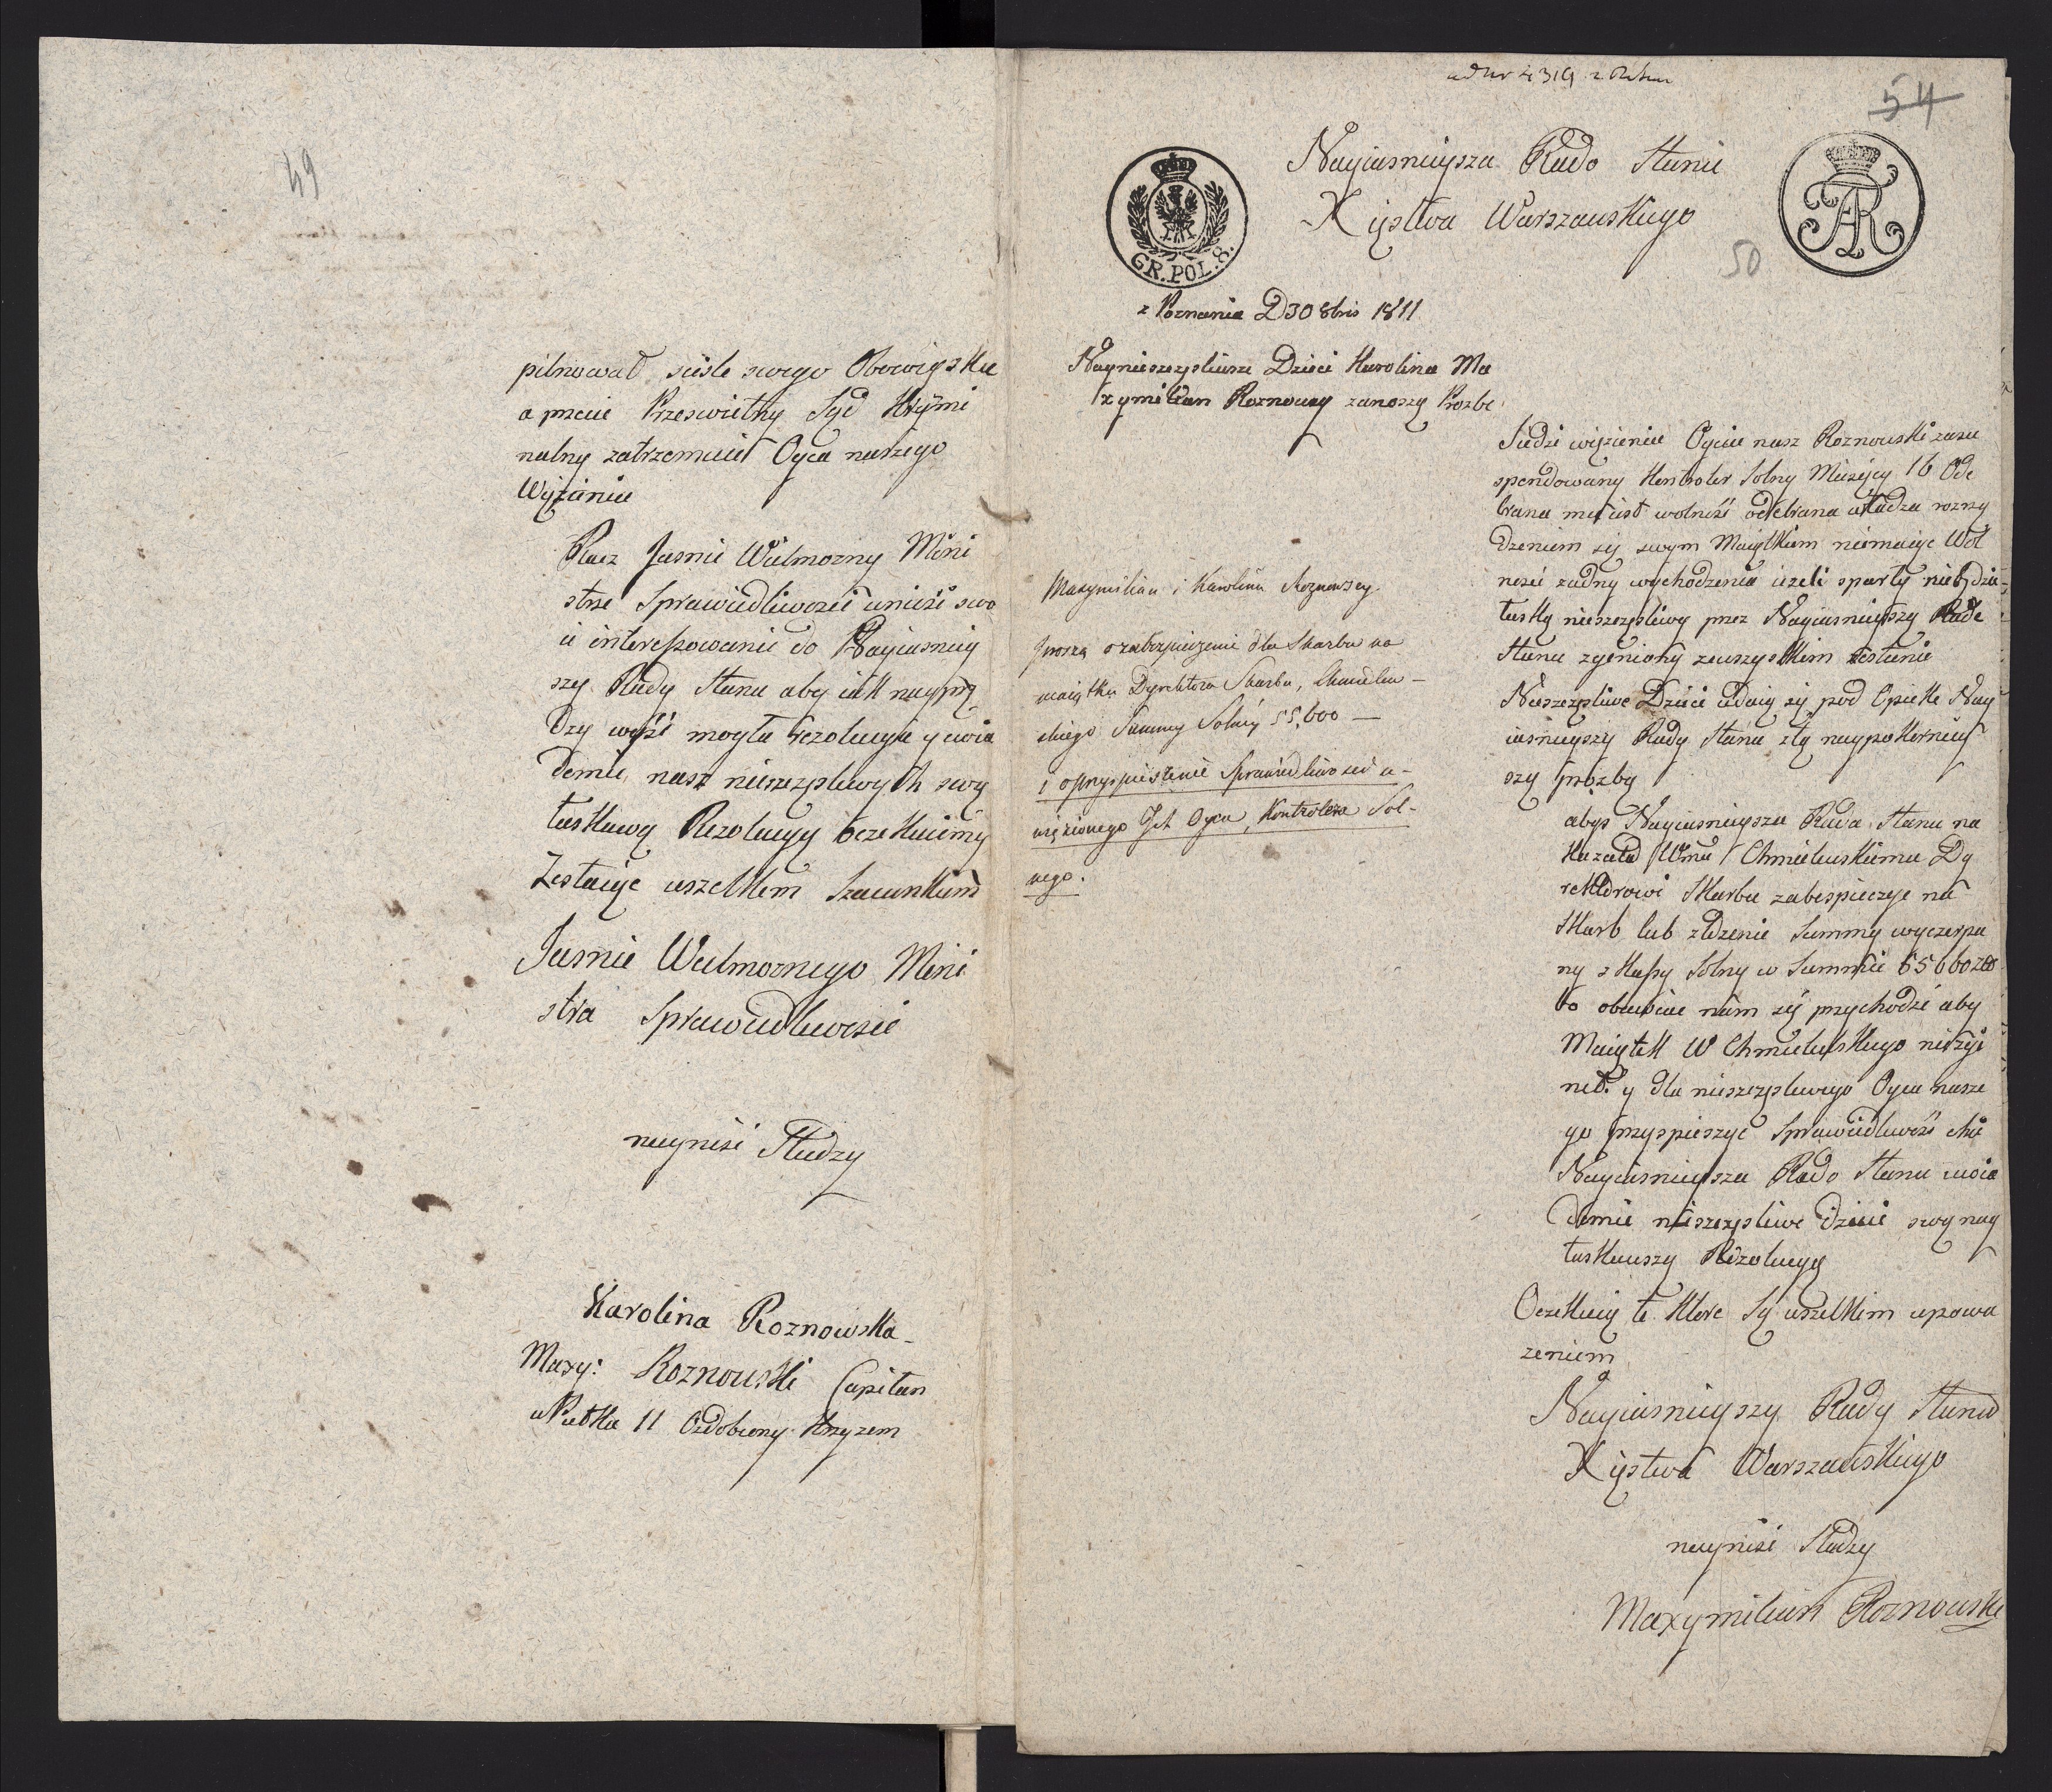 49
pilnował scisle swego Obowięzku
a przeie Przeswietny Sąd Krymi
nalny zatrzemuie Oyca naszego
Więzaniu
Racz Jasnie Wielmozny Mini
strze Sprawiedliwosci uniesc swo
ie interessowanie do Nayiasniey
szy Rady Stanu aby iak nayprę
dzy wyść mogła rezolucyia y uwia
domic nasz nieszczęsliwych swą
łaskawą Rezolucyą oczekuiemy
Zostaiąc wszelkiem Szacunkiem
Jasnie Wielmoznego Mini
stra Sprawiedliwosci
nayniżsi Słudzy
Karolina Roznowska
Maxy: Roznowski Capitan
Pułku 11 Ozdobiony Krzyzem
ad Nr 4319
54
Nayiasnieysza Rado Stanu
Xięstwa Warszawskiego
50
GR. POL. 8.
z Poznania D 30 8bris 1811
Naynieszczęsliwsze Dzieci Karolina Ma
xymilian Roznowscy zanoszą Prozbe
Maxymilian i Karolina Roznowscy
proszą o zabezpieczenie dla Skarbu na
maiątku Dyrektora Skarbu, Chmielew-
skiego Summy Solnéy 55,600 —
i o przyspieszenie Sprawiedliwosci u-
więzionego Ich Oyca, Kontrolera Sol-
nego.
Siedzi więzieniu Oyciec nasz Roznowski zasu
spendowany Kontroler Solny Miesięcy 16 Ode
brana mu iest wolność odebrana władza rozrzą
dzeniem się swym Maiątkiem niemaiąc Wol
nosci zadny wychodzenia iezeli sparty niebędzie
łaską nieszczęsliwy przez Nayiasnieyszą Rade
Stanu zginiony zewszystkim zostanie
Nieszczęsliwe Dzieci udaią się pod Opieke Nay
iasnieyszy Rady Stanu z tą naypokornieỹ
szą prozbą
abyś Nayiasnieysza Rada Stanu na
kazała Wmu Chmielewskiemu Dy
rektorowi Skarbu zabespieczyc na
Skarb lub złozenie Summy wyczerpa
ny z Kassy Solny w Summie 55600 zło
bo obawiac nam się przychodzi aby
Maiątek W Chmielewskiego niezgi
neł. y dla nieszczęsliwego Oyca nasze
go przyspieszyc Sprawiedliwość chci
Nayiasnieysza Rado Stanu uwia
domic nieszczęsliwe dzieci swą nay
łaskawszą Rezolucyą
Oczekuią te ktore Są wszelkim upowa
zeniem
Nayiasnieyszy Rady Stanu
Xięstwa Warszawskiego
nayniżsi Słudzy
Maxymilian Roznowski